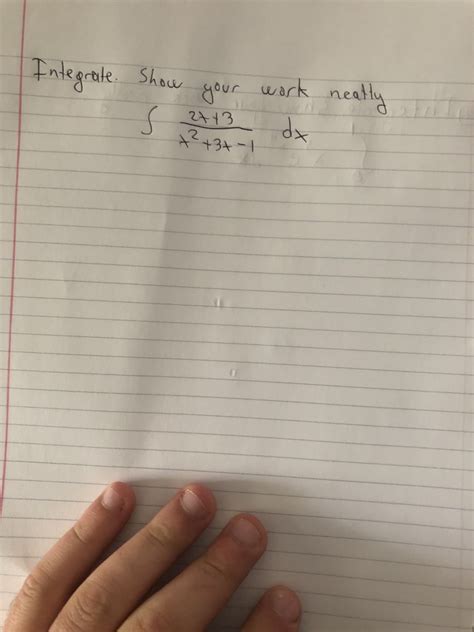 Integrate. Show your work neatly
∫ 2x+3 / x²+3x-1 dx